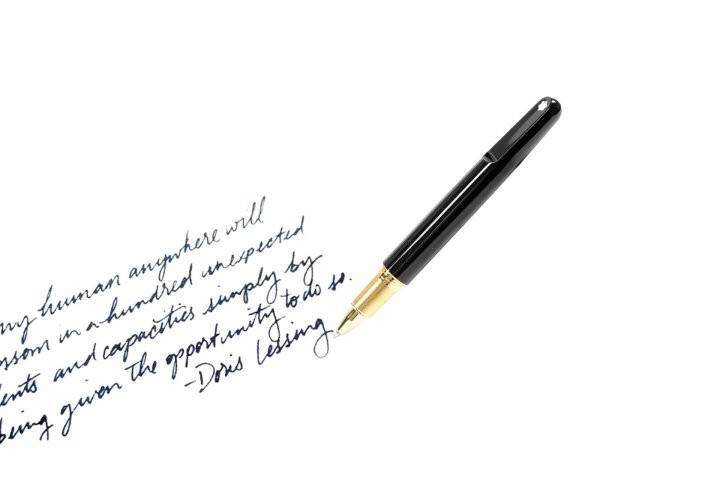 ny human anywhere will
ossom in a hundred unexpected
ents and capacities simply by
being given the opportunity to do so.
-Doris Lessing